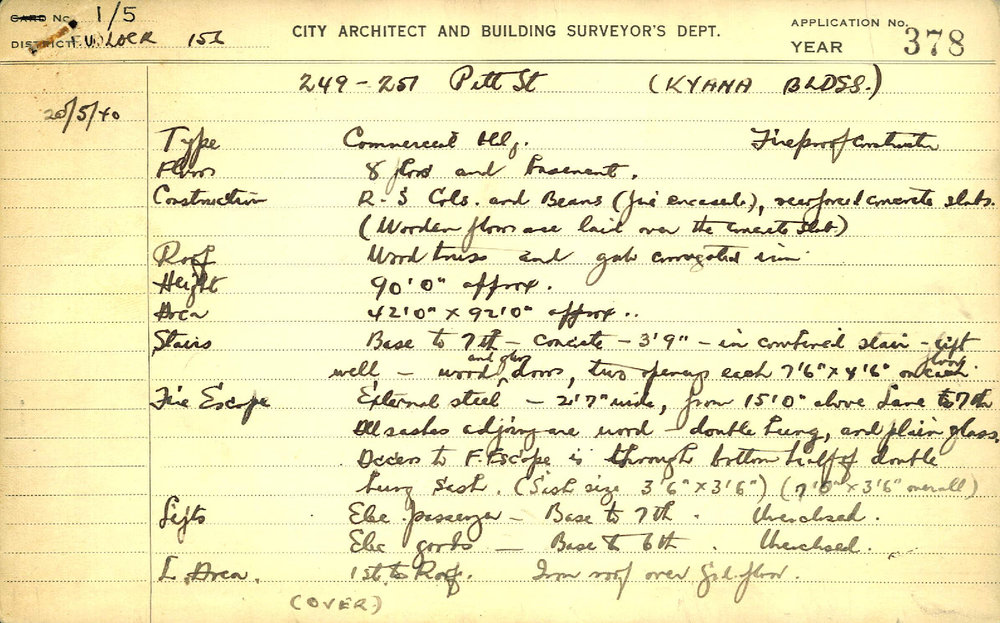 CARD No. 1/5
DISTRICT. FWILDER 156
CITY ARCHITECT AND BUILDING SURVEYOR'S DEPT.
APPLICATION No.
YEAR 378
249-251 Pitt St (KYANA BLDGS.)
20/5/40
Type Commercial bldg. Fireproof construction
Floors 8 floors and basement.
Construction R.S Cols. and Beams (fire encased), reinforced concrete slabs.
(Wooden floors are laid over the concrete slab)
Roof Wood truss and galv corrugated iron
Height 90'0" approx.
Area 42'0" x 92'0" approx..
Stairs Base to 7th - concrete - 3'9" - in combined stair - lift
well - wood and glass doors, two openings each 7'6" x 4'6" on each floor.
Fire Escape External steel - 2'7" wide, from 15'0" above Lane to 7th
All sashes adjoing are wood - double hung, and plain glass.
Access to F. Escape is through bottom half of double
hung sash. (Sash size 3'6" x 3'6") (7'0" x 3'6" overall)
Lifts Elec passenger - Base to 7th. Unenclosed.
Elec goods - Base to 6th. Unenclosed.
L. Area. 1st to Roof. Iron roof over Gd. floor.
(OVER)